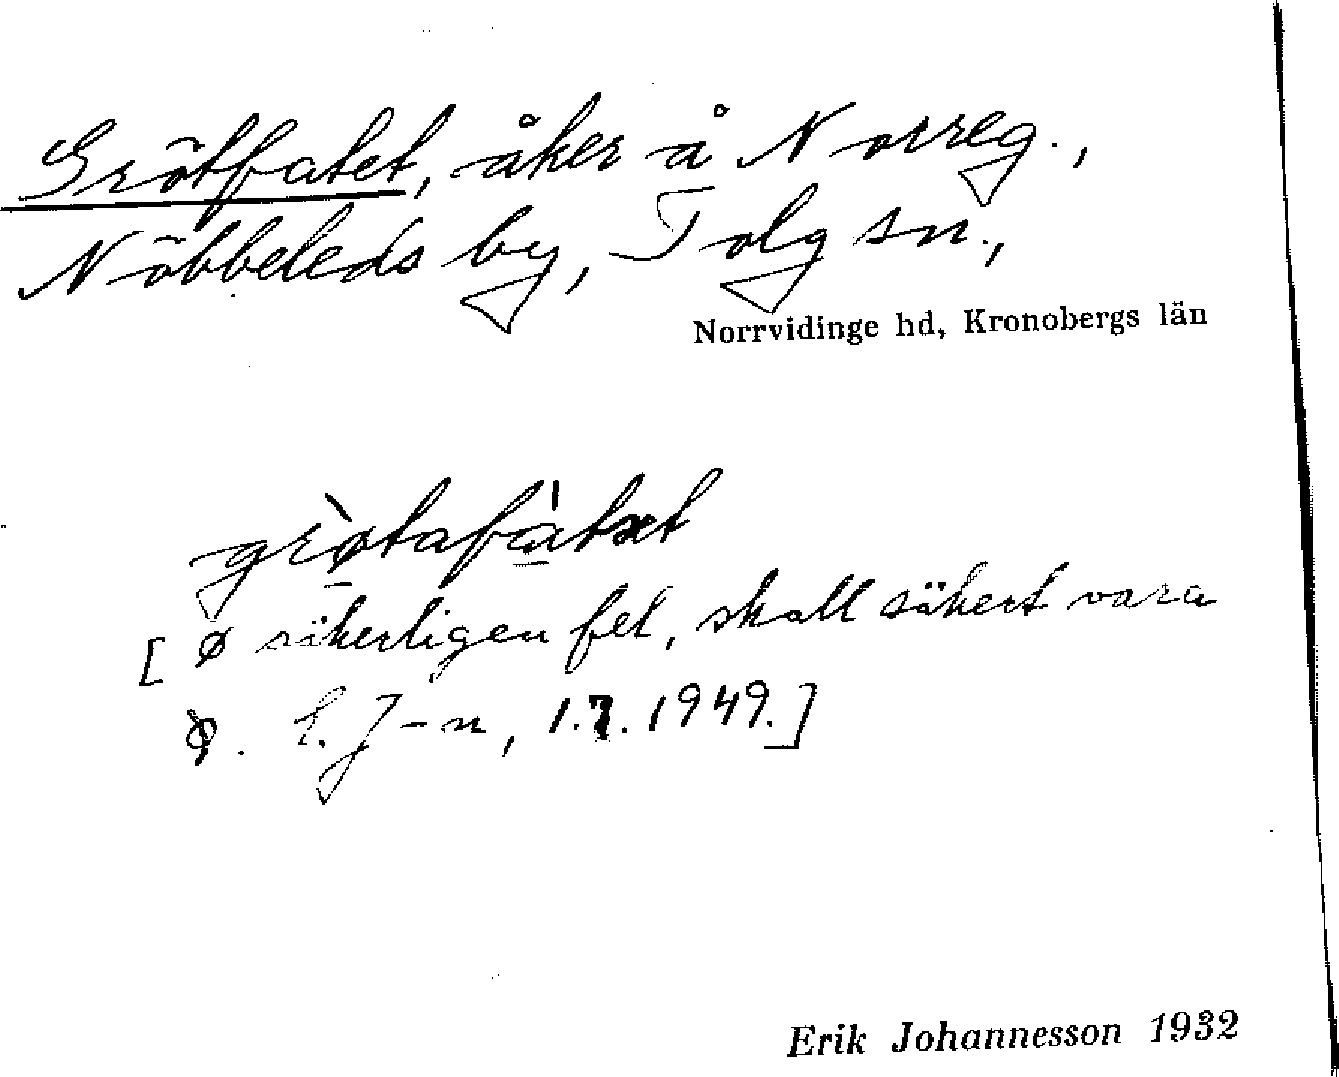 Grötfatet, åker å Norreg.,
Nöbbeleds by, Tolg sn.,
Norrvidinge hd, Kronobergs län
grøtafatæt
[ ø säkerligen fel, skall säkert vara
E. J-n, 1.7.1949.]
Erik Johannesson 1932